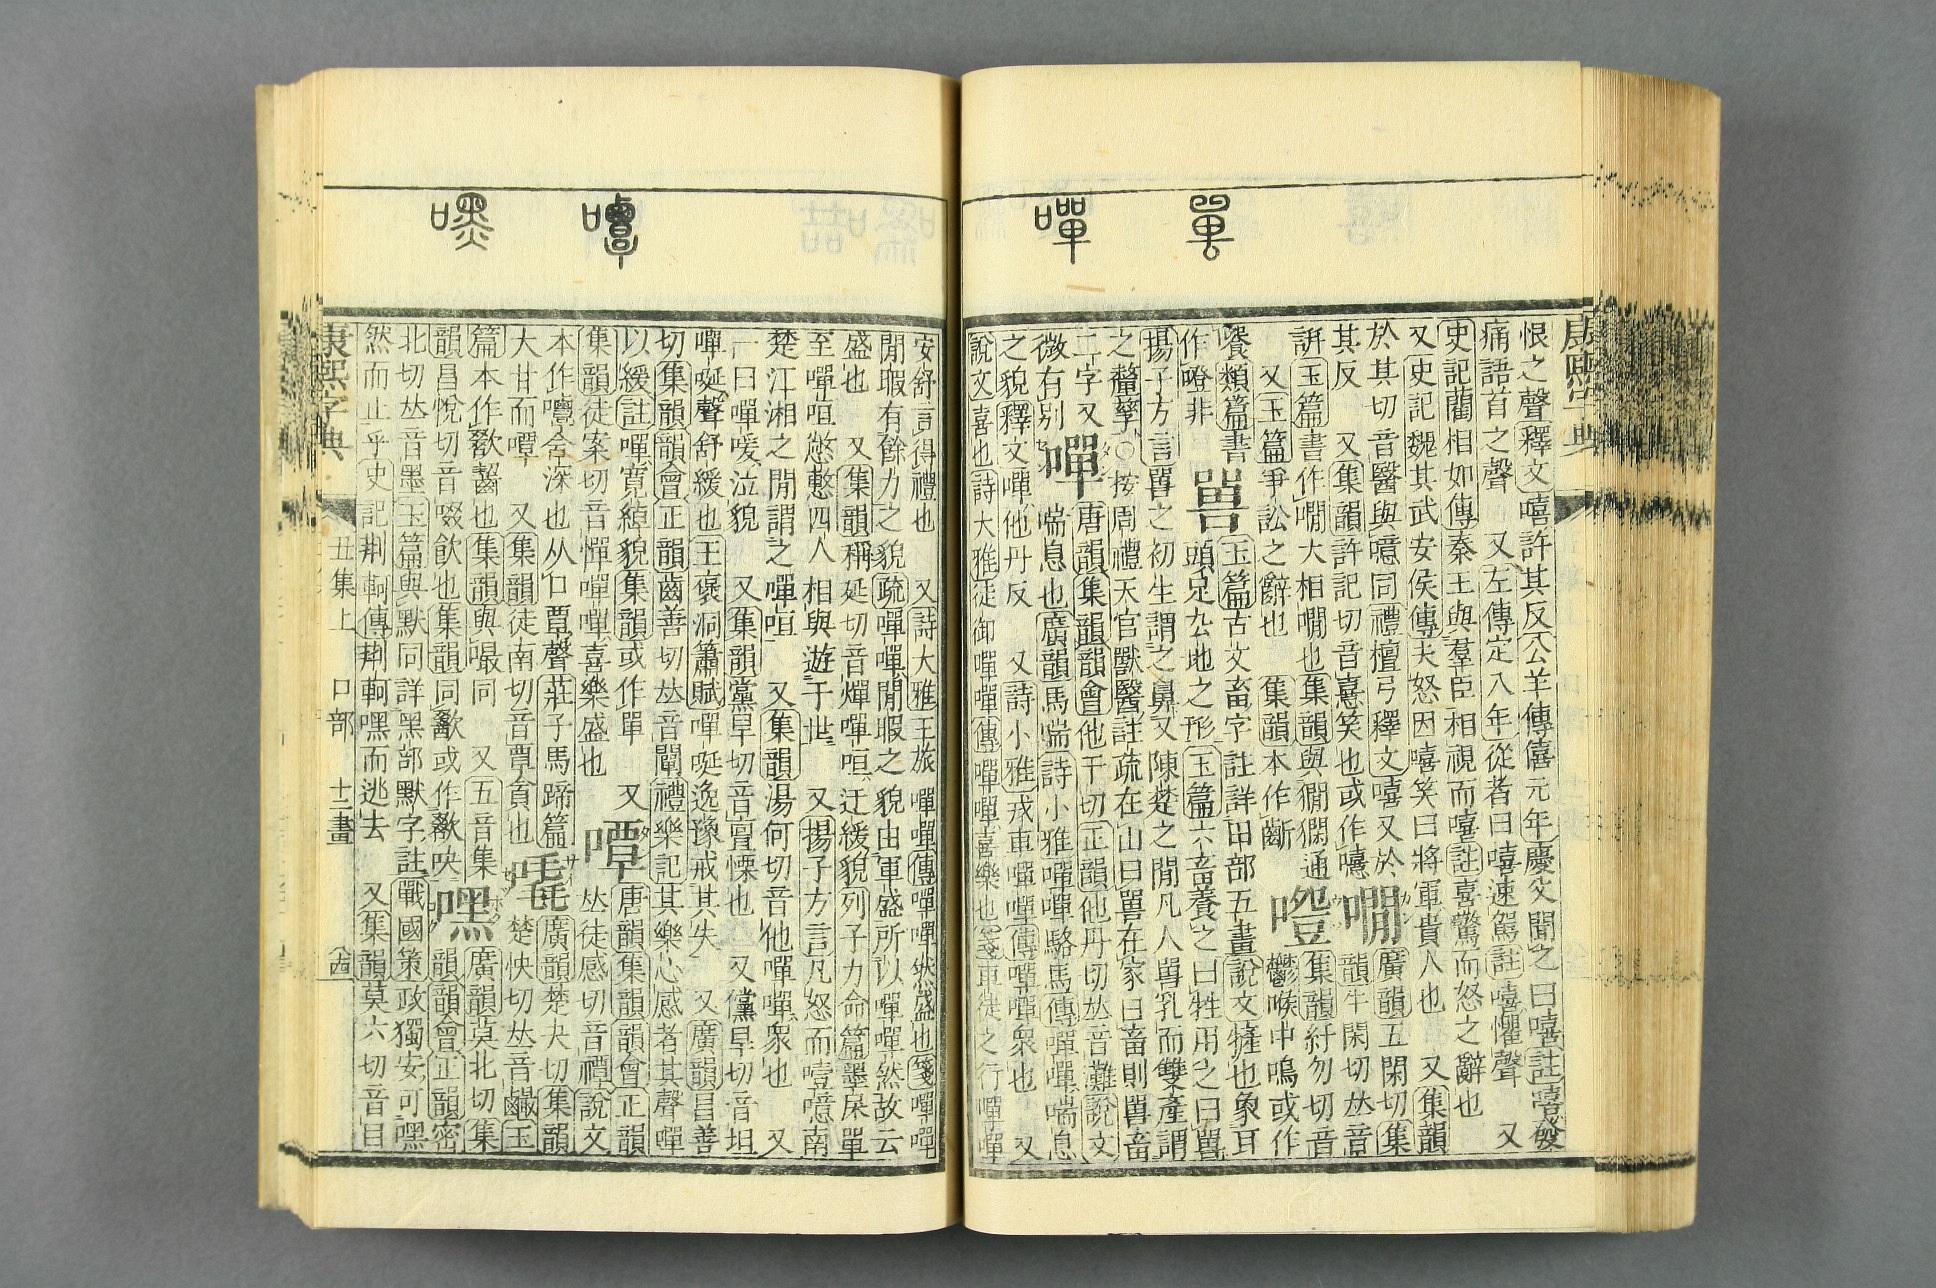 嘼
嘽
恨之聲釋文嘻許其反公羊傳僖元年慶父聞之曰嘻註嘻發
痛語首之聲 又左傳定八年從者曰嘻速駕註嘻懼聲 又
史記藺相如傳秦王與羣臣相視而嘻註喜驚而怒之辭也
又史記魏其武安侯傳夫怒因嘻笑曰將軍貴人也 又集韻
於其切音醫與噫同禮檀弓釋文嘻又於
其反 又集韻許記切音憙笑也或作嚱
嫺
廣韻五閑切集
韻牛閑切𠀤音
訮玉篇書作嫺大相嫺也集韻與㺊𤡥通
又玉篇爭訟之辭也 集韻本作齗
噔
集韻紆勿切音
鬱喉中嗚或作
饖類篇書
作噔非
嘼
玉篇古文畜字註詳田部五畫說文㹌也象耳
頭足厹地之形玉篇六畜養之曰牲用之曰嘼
揚子方言嘼之初生謂之鼻又陳楚之閒凡人嘼乳而雙產謂
之釐孳〇按周禮天官獸醫註疏在山曰嘼在家曰畜則嘼畜
二字又
微有别
嘽
唐韻集韻韻會他干切正韻他丹切𠀤音灘說文
喘息也廣韻馬喘詩小雅嘽嘽駱馬傳嘽嘽喘息
之貌釋文嘽他丹反 又詩小雅戎車嘽嘽傳嘽嘽衆也 又
說文喜也詩大雅徒御嘽嘽傳嘽嘽喜樂也箋車徒之行嘽嘽
康熙字典
嘾
嘿
安舒言得禮也 又詩大雅王旅嘽嘽傳嘽嘽然盛也箋嘽嘽
閒暇有餘力之貌疏嘽嘽閒暇之貌由軍盛所以嘽嘽然故云
盛也 又集韻稱延切音燀嘽咺迂緩貌列子力命篇墨杘單
至嘽咺憋懯四人相與遊于世 又揚子方言凡怒而噎噫南
楚江湘之閒謂之嘽咺 又集韻湯何切音他嘽嘽衆也 又
一曰嘽喛泣貌 又集韻黨旱切音亶慄也 又儻旱切音坦
嘽㖤聲舒緩也王襃洞簫賦嘽㖤逸豫戒其失 又廣韻昌善
切集韻韻會正韻齒善切𠀤音闡禮樂記其樂心感者其聲嘽
以緩註嘽寬綽貌集韻或作單 又
集韻徒案切音憚嘽嘽喜樂盛也
嘾
唐韻集韻韻會正韻
𠀤徒感切音禫說文
本作嚪含深也从口覃聲莊子馬蹄篇
大甘而嘾 又集韻徒南切音覃貪也
㗔
廣韻楚夬切集韻
楚快切𠀤音𪘪玉
篇本作欼齧也集韻與嘬同 又五音集
韻昌悅切音啜飮也集韻同歠或作欼吷
嘿
廣韻莫北切集
韻韻會正韻密
北切𠀤音墨玉篇與默同詳黑部默字註戰國策政獨安可嘿
然而止乎史記荆軻傳荆軻嘿而逃去 又集韻莫六切音目
康熙字典 丑集上 口部 十二畫